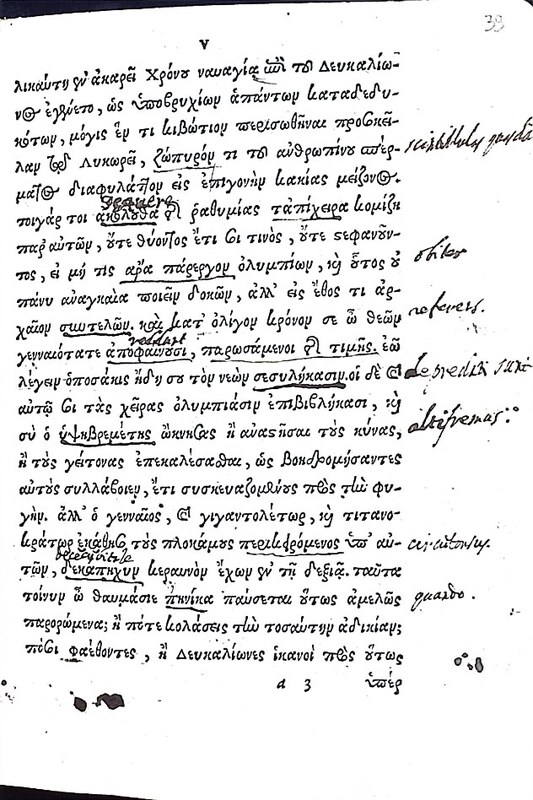 39
V
λικαύτη ἐν ἀκαρεῖ Χρόνου ναυαγία ἐπὶ τοῦ Δευκαλίω-
νος ἐγένετο, ὡς ὑποβρυχίων ἁπάντων καταδεδυ-
κότων, μόγις ἕν τι κιβώτιον περισωθῆναι προσοκεῖ-
λαν τῷ Λυκωρεῖ, ζώπυρόν τι τοῦ ἀνθρωπίνου σπέρ-
ματος διαφυλάττον εἰς ἐπιγονὴν κακίας μείζονος.
τοιγάρ τοι ἀκόλουθα τῆς ῥαθυμίας ταπίχειρα κομίζῃ
παρ αὐτῶν, οὔτε θύοντος ἔτι σοι τινὸς, οὔτε στεφανοῦν-
τος, εἰ μή τις ἄρα πάρεργον ὀλυμπίων, καὶ οὗτος οὐ
πάνυ ἀναγκαῖα ποιεῖν δοκῶν, ἀλλ' εἰς ἔθος τι ἀρ-
χαῖον συντελῶν. καὶ κατ' ὀλίγον κρόνον σε ὦ θεῶν
γενναιότατε ἀποφαίνουσι, παρωσάμενοι τῆς τιμῆς. ἐῶ
λέγειν ὁποσάκις ἤδη σου τὸν νεὼν σεσυλήκασιν. οἱ δὲ καὶ
αὐτῷ σοι τὰς χεῖρας ὀλυμπίασιν ἐπιβεβλήκασι, καὶ
σὺ ὁ ὑψιβρεμέτης ὤκνησας ἢ ἀναστῆσαι τοὺς κύνας,
ἢ τοὺς γείτονας ἐπεκαλέσασθαι, ὡς βοηδρομήσαντες
αὐτοὺς συλλάβοιεν, ἔτι συσκευαζομένους πρὸς τὴν φυ-
γήν. ἀλλ' ὁ γενναῖος, καὶ γιγαντολέτωρ, καὶ τιτανο-
κράτωρ ἐκάθησο τοὺς πλοκάμους περικειρόμενος ὑπ' αὐ-
τῶν, δεκαπηχυν κεραυνὸν ἔχων ἐν τῇ δεξιᾷ. ταῦτα
τοίνυν ὦ θαυμάσιε πηνίκα παύσεται οὕτως ἀμελῶς
παρορώμενα; ἢ πότε κολάσεις τὴν τοσαύτην ἀδικίαν;
πόσοι φαέθοντες, ἢ Δευκαλίωνες ἱκανοὶ πρὸς οὕτως
a 3 ὑπέρ
obiter
referens.
altifremas
quando.